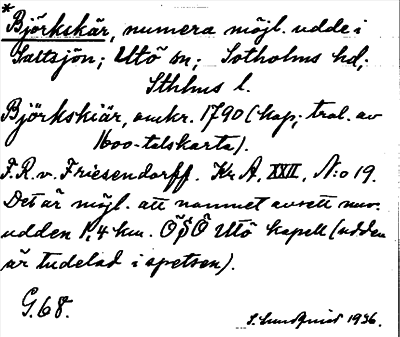 *Björkskär, numera möjl. udde i
Saltsjön; Utö sn; Sotholms hd;
Sthlms l.
Björkskiär, omkr. 1790 (kop; trol. av
1600-talskarta).
F.R.v. Friesendorff. Kr A, XXII, N:o 19.
Det är möjl. att namnet avsett nuv.
udden 1,4 km. ÖSÖ Utö kapell (udden
är tudelad i spetsen).
G.68.
S. Lundquist 1936.